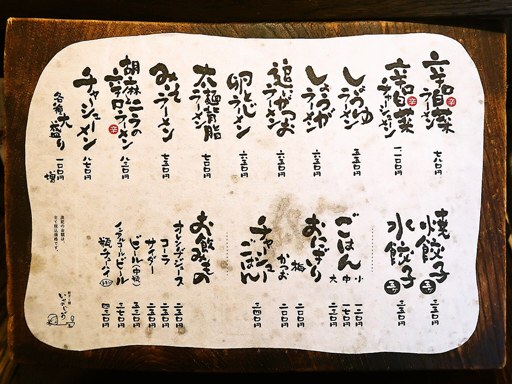 辛白菜ラーメン 七八〇円
辛白菜チャーシューメン
しょうゆラーメン 五五〇円
しょうがラーメン 六五〇円
追いがつおラーメン 六五〇円
卵とじラーメン 六五〇円
太麺背脂ラーメン 七〇〇円
みそラーメン 七五〇円
胡麻とニラの辛口ラーメン 八三〇円
チャーシューメン 八七〇円
各種大盛り 一〇〇円増
焼餃子 五ヶ 三五〇円
水餃子 五ヶ 三五〇円
ごはん
小
中 一七〇円
大
おにぎり
かつお 二〇〇円
梅 二〇〇円
チャーシューごはん 三四〇円
お飲みもの
オレンジジュース 二五〇円
コーラ 二五〇円
サイダー 二五〇円
ビール(中瓶) 五三〇円
ノンアルコールビール 三七〇円